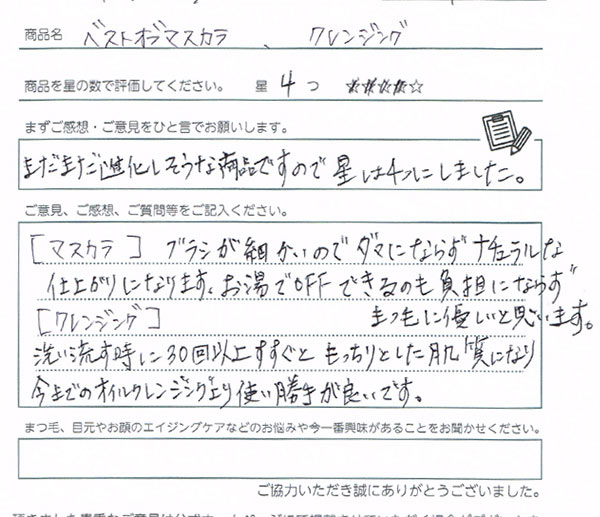 商品名 ベストオブマスカラ 、 クレンジング
商品を星の数で評価してください。 星 4 つ ★★★★☆
まずご感想・ご意見をひと言でお願いします。
まだまだ進化しそうな商品ですので星は4つにしました。
ご意見、ご感想、ご質問等をご記入ください。
[マスカラ] ブラシが細かいのでダマにならずナチュラルな
仕上がりになります。お湯でOFFできるのも負担にならず
まつ毛に優しいと思います。
[クレンジング]
洗い流す時に30回以上すすぐともっちりとした肌質になり
今までのオイルクレンジングより使い勝手が良いです。
まつ毛、目元やお顔のエイジングケアなどのお悩みや今一番興味があることをお聞かせください。
ご協力いただき誠にありがとうございました。